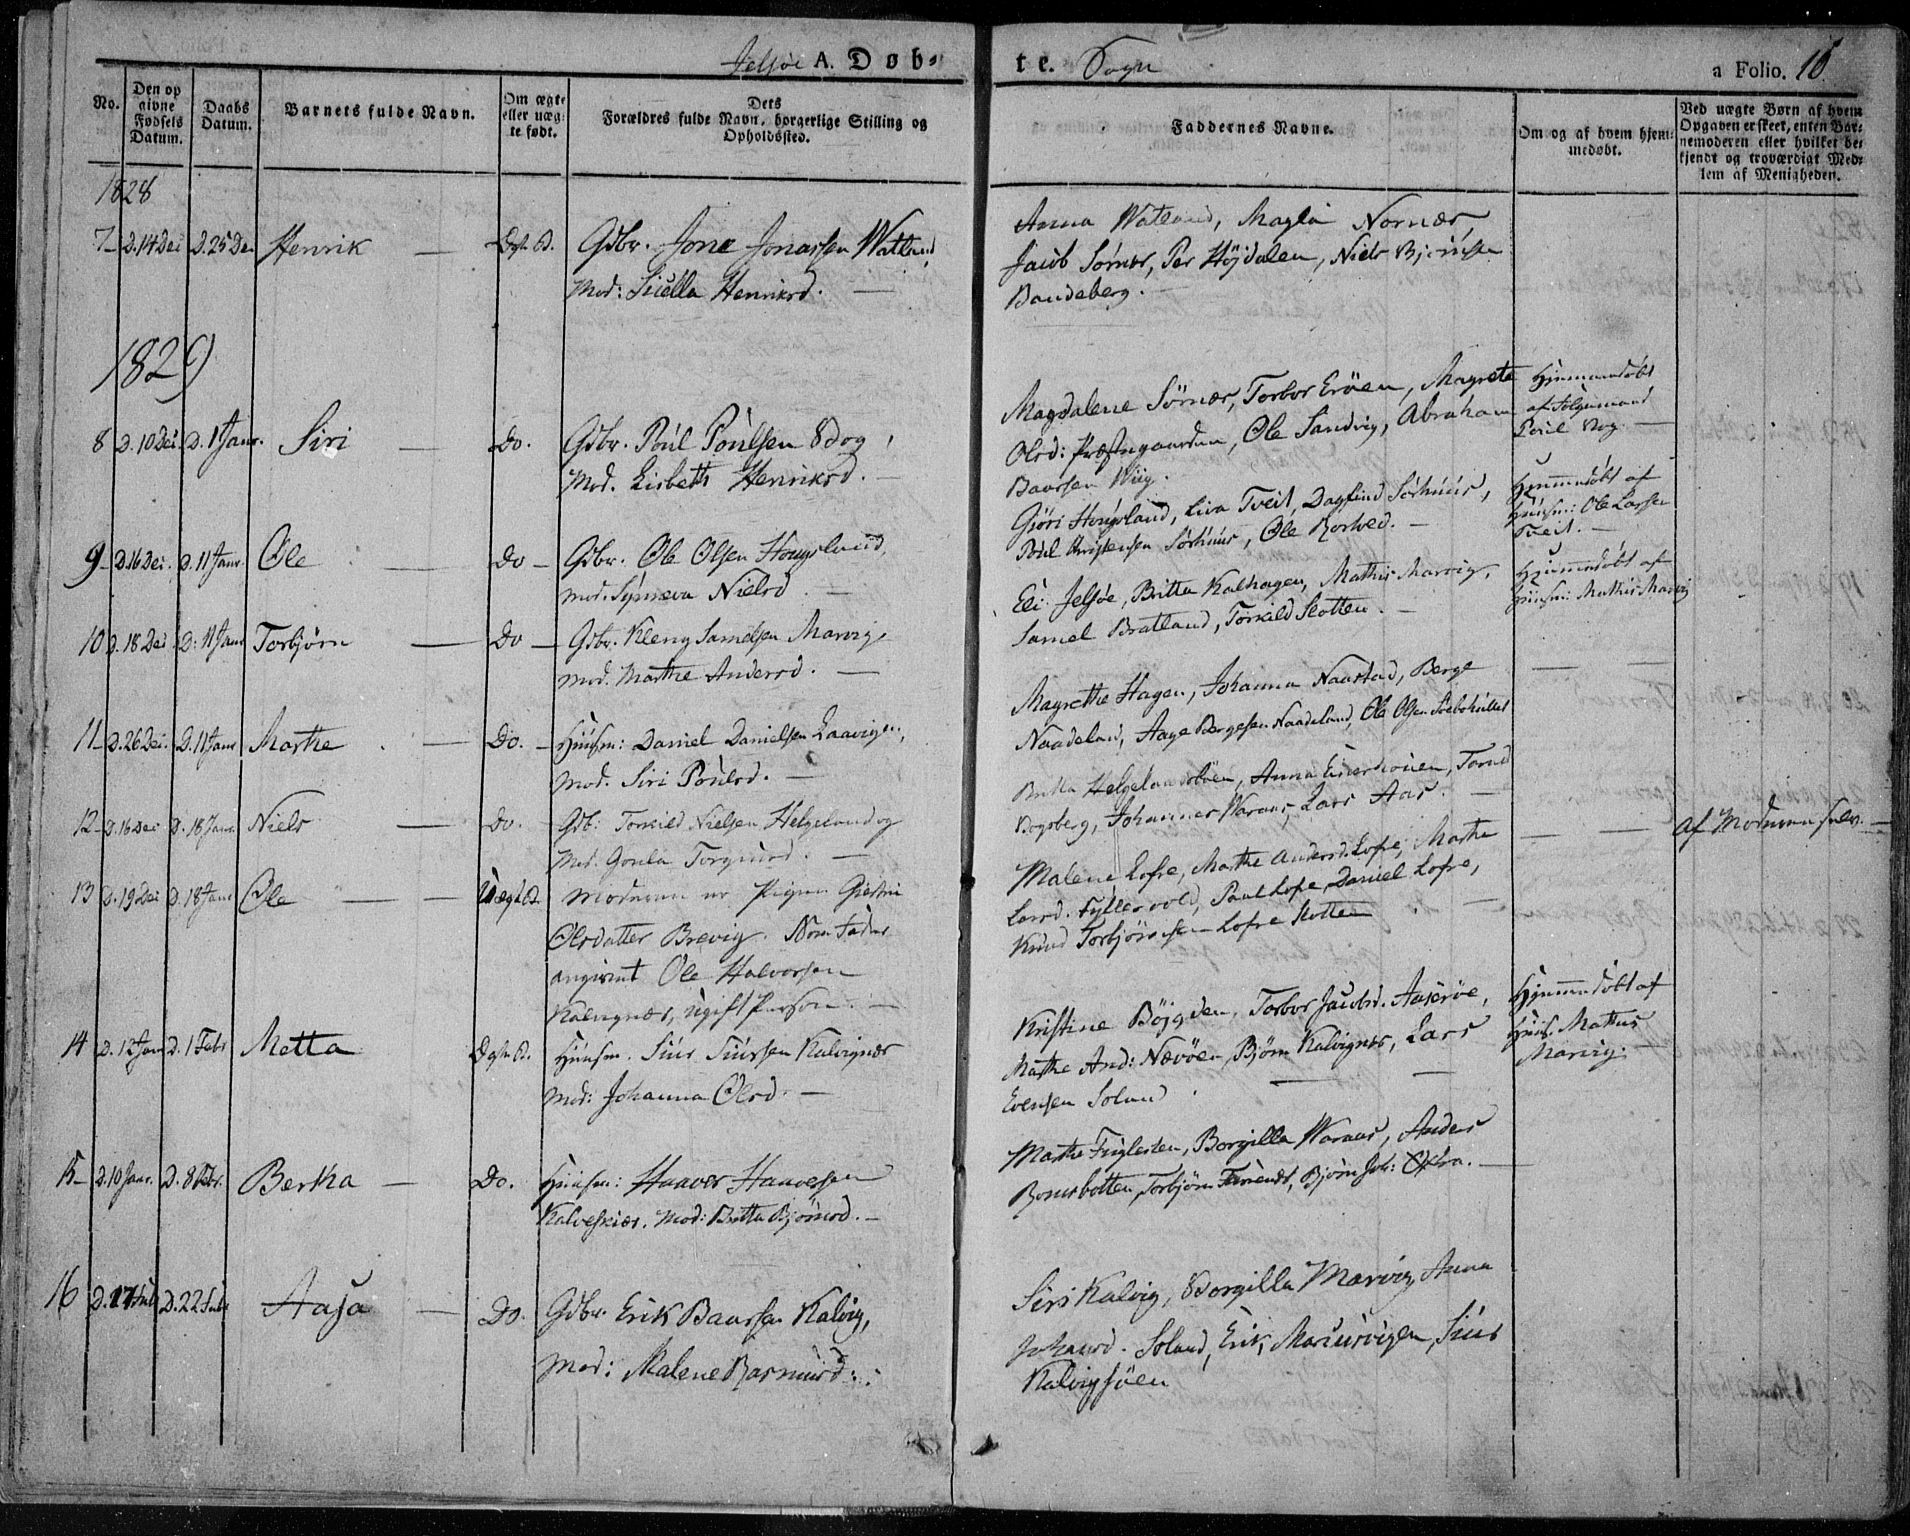 Jelsøe A. Døb-
te. Sogn
a Folio. 16
No.
Den op
givne
Fødsels
Datum.
Daabs
Datum.
Barnets fulde Navn.
Om ægte
eller uæg-
te født.
Dets
Forældres fulde Navn, borgerlige Stilling og
Opholdssted.
Faddernes Navne.
Om og af hvem hjem-
medøbt.
Ved uægte Børn af hvem
Opgaven er skeet, enten Bar-
nemoderen eller hvilket be-
kjendt og troværdigt Med-
lem af Menigheden.
1828
7 - D. 14 Dec D. 25 Dec Henrik — Ægte B. Gdbr. Jone Jonassen Watland,
Mod: Sicella Henriksd. —
Anna Watland, Magla Nornæs,
Jacob Sørnes, Per Højdalen, Niels
Bandeberg. —
1829
8 D. 10 Dec D. 1 Janr. Siri — Do. Gdbr. Poul Poulsen
Mod. Lisbeth Henriksd. —
Magdalene Sørnæs, Torbor Erøen, Magrete
Olsd: Præstegaarden, Ole Sandvig, Abraham
Baarsen Wiig.
Hjemmedøbt
af
Poul
9 - D. 16 Dec. D. 11 Janr Ole — Do - Gdbr. Ole Olsen Hougsland,
mod. Synneva Nielsd. —
Gjøri Hougsland, Liva Tveit, Dagfind Sørhuus,
Poul Christensen Sørhuus, Ole. —
Hjemmedøbt af
Huusm: Ole Larsen
Tveit. —
10 D. 18 Dec D: 11 Janr Torbjørn — Do — Gdbr. Kleng Samelsen Marvig,
mod. Marthe Andersd. —
Eli Jelsøe, Britta Kalhagen, Mathis Marvig,
Samel Bratland, Torkild Slotten. —
Hjemmedøbt af
Huusm: Mathis Marvig
11 - D. 26 Dec. D. 11 Janr Marthe — Do. - Huusm: Daniel Danielsen Laavigen,
Mod. Siri Poulsd. —
Magrethe Hagen, Johanna Naastad, Berge
Naadeland, Aage Bergesen Naadeland, Ole Olsen
12 - D. 16 Dec D. 18 Janr. Niels — Do. Gdb: Torkild Nielsen Helgeland og
Mod. Gonla —
Britta Helgelandsbøen, Anna,
, Johannes Waraas, Lars Aas. —
13 D. 19 Dec D. 18 Janr Ole — — Uægte B. Moderen er Pigen
Olsdatter Brevig. Som Fader
angivent Ole Halvorsen
Kalvignæs, ugift Person. —
Malene Lofre, Marthe Andersd. Lofre, Marthe
Larsd., Paul Lofre, Daniel Lofre,
Knud Torbjørnsen Lofre Slotten —
— — Af Moderen selv. —
14 D. 12 Jan D. 1 Febr Metta — Ægte B. Huusm. Siur Siursen Kalvignæs
Mod: Johanna Olsd. —
Kristine Bøjgden, Torbor Jacobsd.,
Marthe And: Nævøen, Bjørn Kalvignæs, Lars
Evensen Soland
Hjemmedøbt af
Huus. Mathis
Marvig. —
15 - D. 10 Janr. D. 8 Febr. Bertha — Do. Huusm: Haaver Haaversen
Kalveskiær. Mod: Britta Bjørnsd. —
Marthe Fuglesten, Borgilla Waraas, Anders
, Torbjørn, Bjørn Joh: —
16 D. 17 D. 22 Aasa — Do. Gdbr. Erik Baarsen Kalvig,
Mod: Malene Rasmusd:
Siri Kalvig, Borgilla Marvig, Anna
Johansd. Soland, Erik, Siur
Kalvigsøen